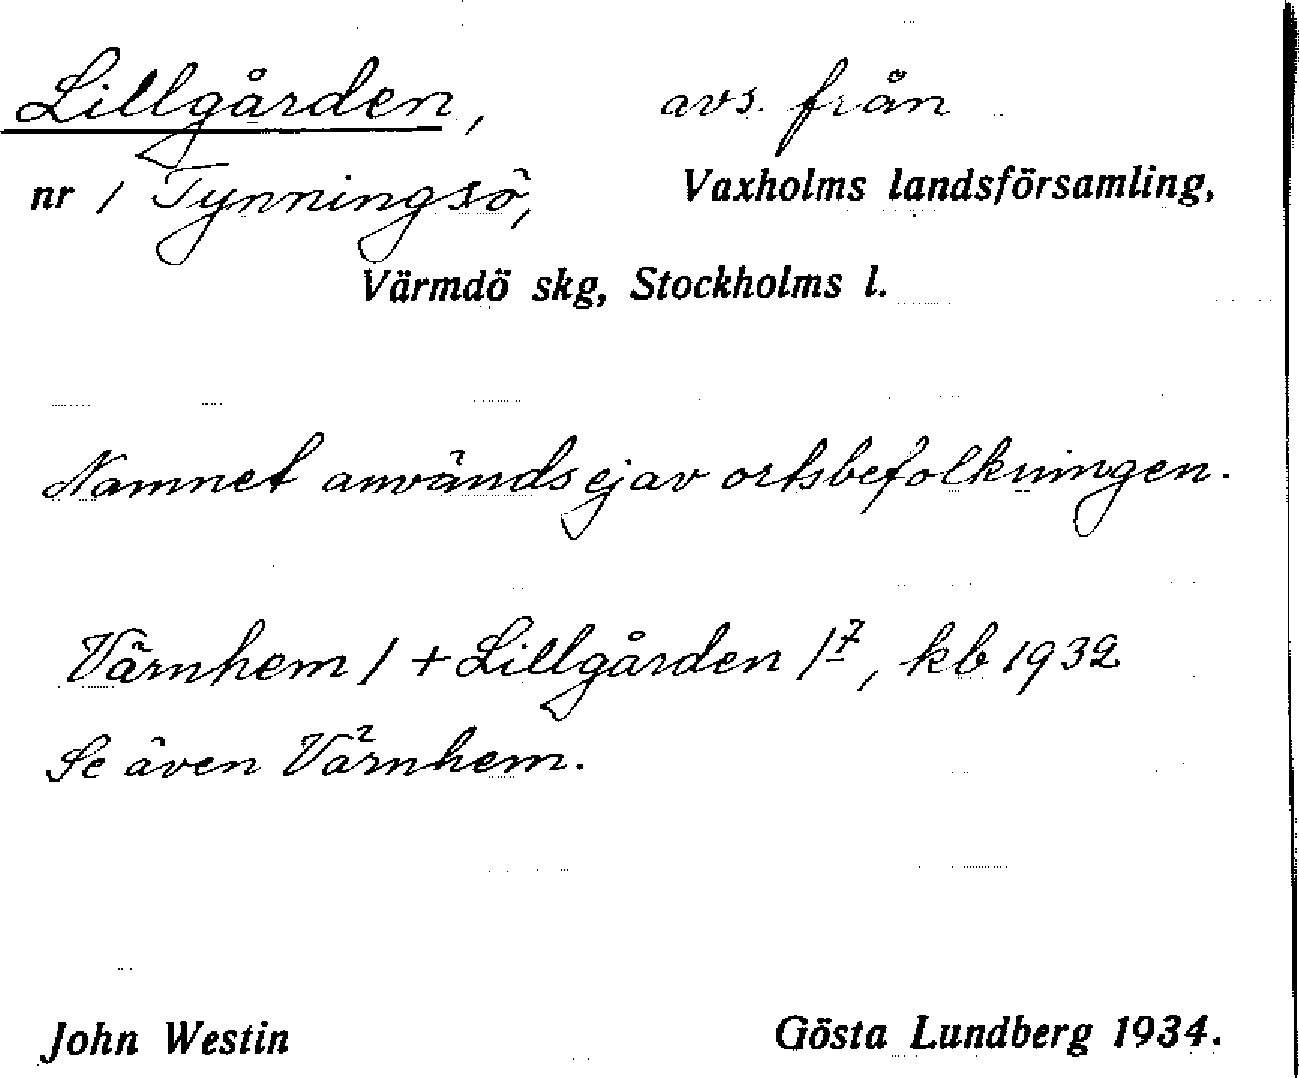 Lillgården, avs. från
nr 1 Tynningsö, Vaxholms landsförsamling,
Värmdö skg, Stockholms l.
Namnet användes ej av ortsbefolkningen.
Värnhem 1 + Lillgården 1⁷, kb 1932
Se även Värnhem.
John Westin Gösta Lundberg 1934.